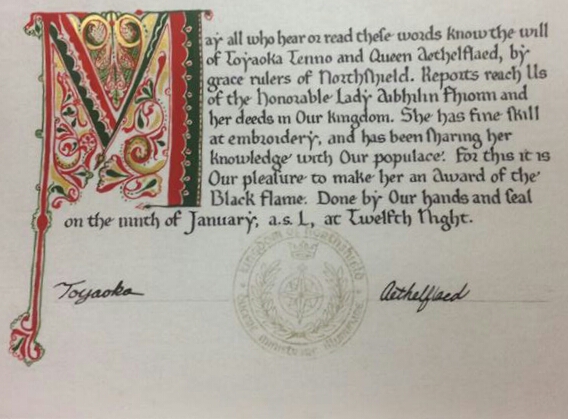 May all who hear or read these words know the will
of Toyaoka Tenno and Queen Aethelflaed, by
grace rulers of Northshield. Reports reach Us
of the Honorable Lady Aibhilin Fhionn and
her deeds in Our kingdom. She has fine skill
at embroidery, and has been sharing her
knowledge with Our populace. For this it is
Our pleasure to make her an Award of the
Black Flame. Done by Our hands and seal
on the ninth of January, a.s. L, at Twelfth Night.
Kingdom of Northshield
Toyaoka
Aethelflaed